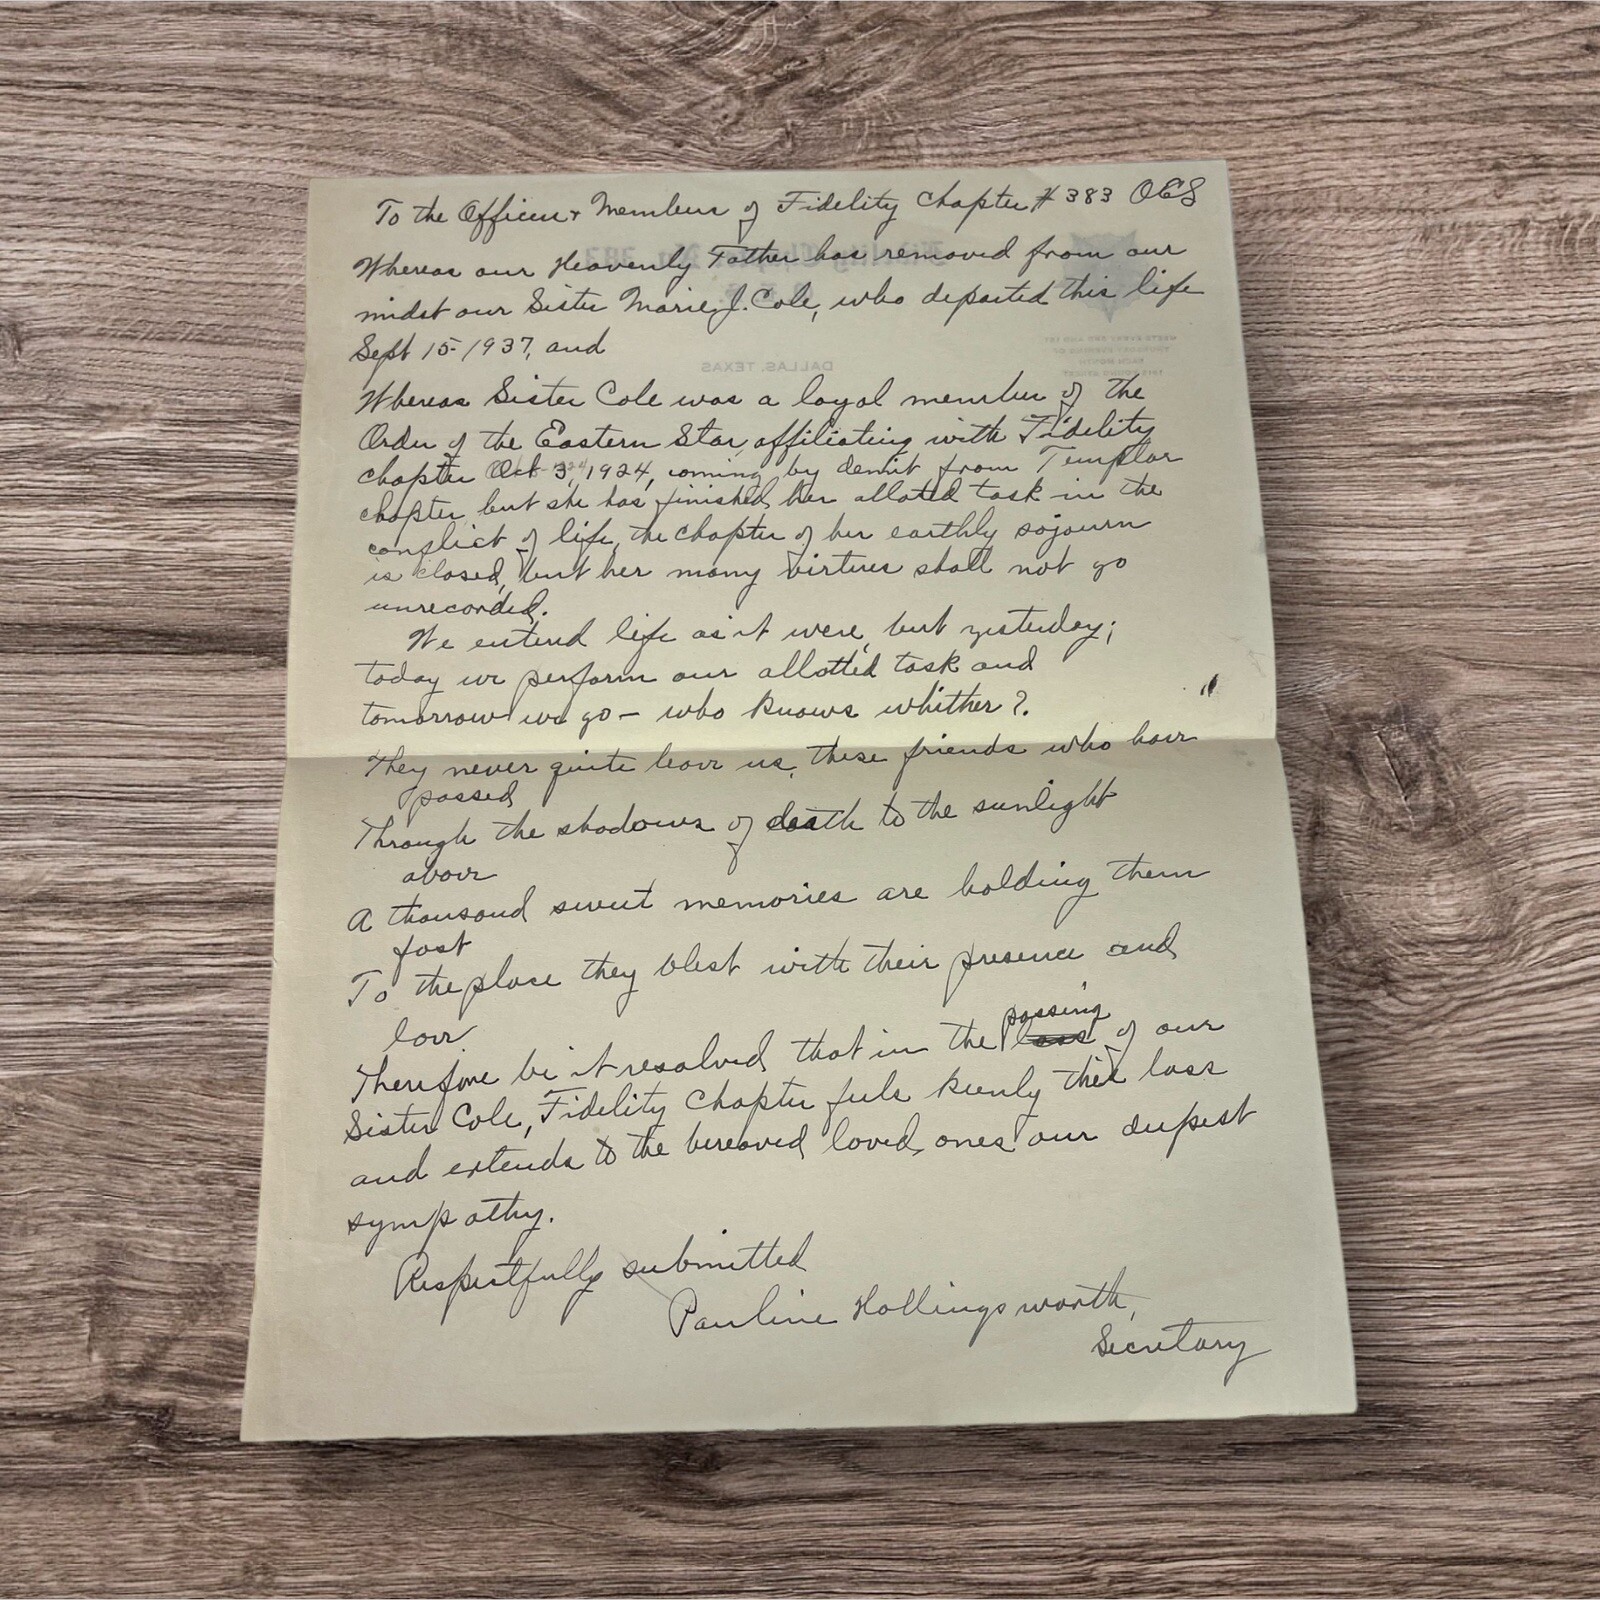 To the Officers & Members of Fidelity Chapter # 383 OES
Whereas our Heavenly Father has removed from our
midst our Sister Marie J. Cole, who departed this life
Sept 15 - 1937, and
DALLAS, TEXAS
Whereas Sister Cole was a loyal member of the
Order of the Eastern Star, affiliating with Fidelity
Chapter Oct 3, 1924, coming by demit from Templar
Chapter but she has finished her alloted task in the
conflict of life, the chapter of her earthly sojourn
is closed, but her many virtues shall not go
unrecorded.
We entered life as it were, but yesterday;
today we perform our allotted task and
tomorrow we go - who knows whither?
They never quite leave us, these friends who have
passed
Through the shadows of death to the sunlight
above
A thousand sweet memories are holding them
fast
To the place they blest with their presence and
love
passing
Therefore be it resolved that in the loss of our
Sister Cole, Fidelity Chapter feels keenly their loss
and extends to the bereaved loved ones our deepest
sympathy.
Respectfully submitted
Pauline Hollingsworth,
Secretary